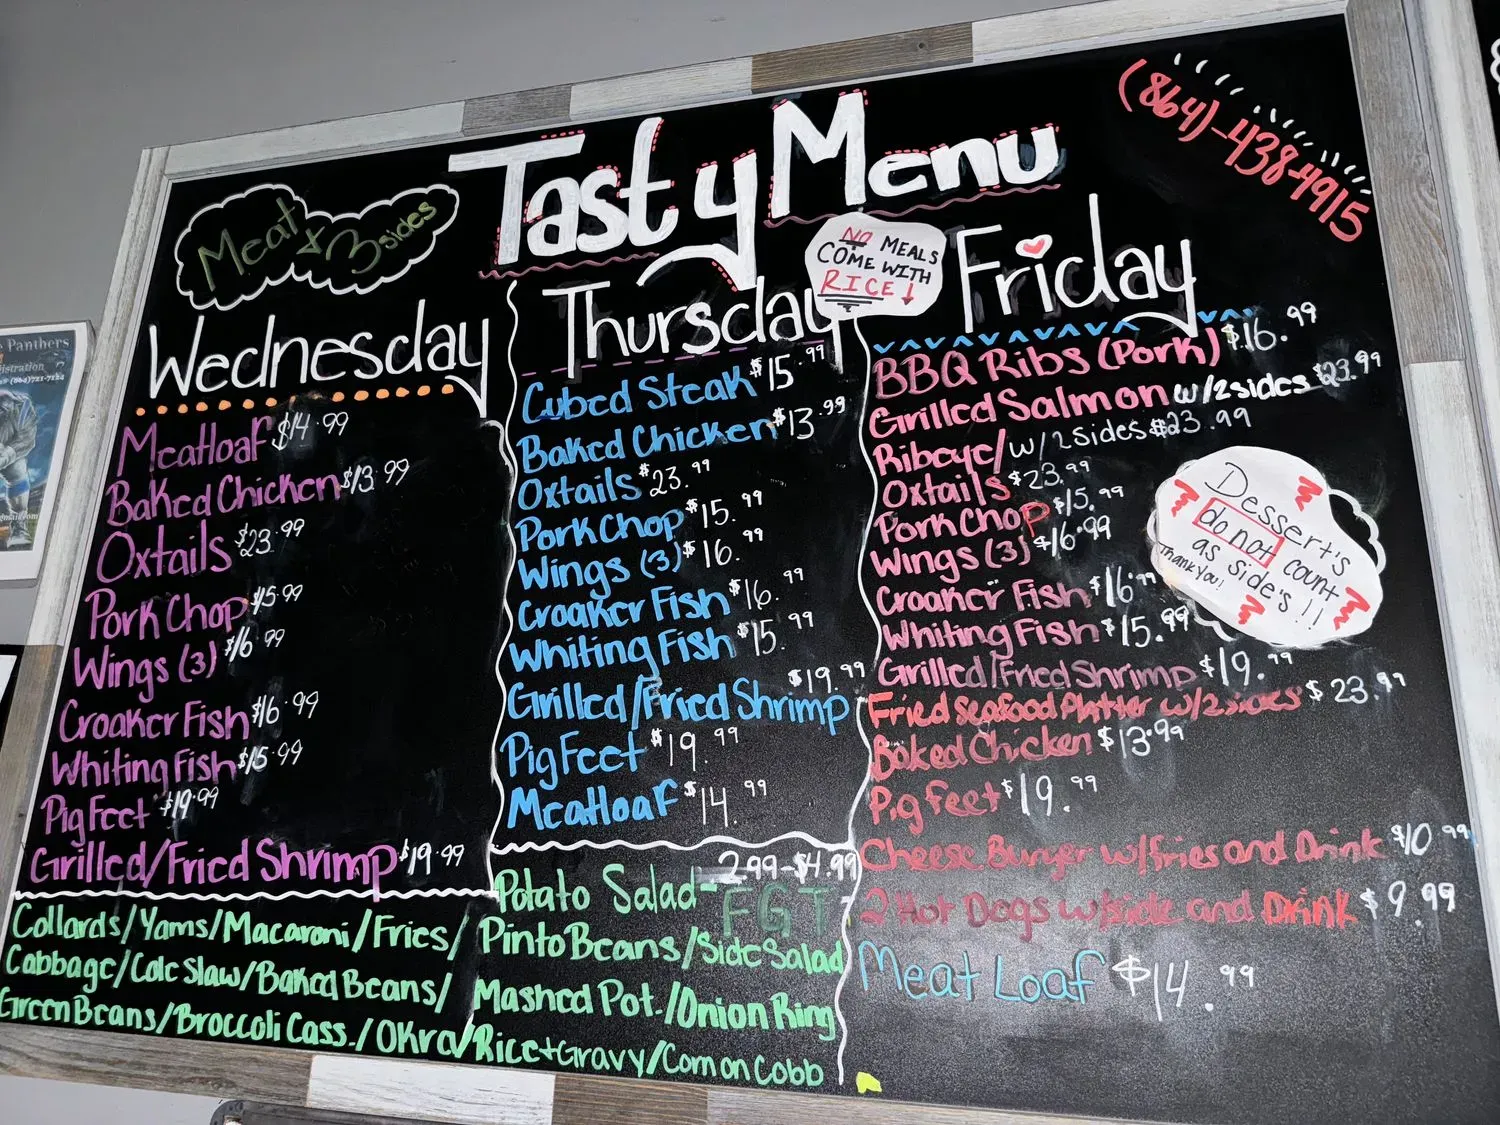 Tasty Menu
(864)-438-4915
Meat & 3 sides
NO MEALS
COME WITH
RICE!
Wednesday
Meatloaf $14.99
Baked Chicken $13.99
Oxtails $23.99
Pork Chop $15.99
Wings (3) $16.99
Croaker Fish $16.99
Whiting Fish $15.99
Pig Feet $19.99
Grilled/Fried Shrimp $19.99
Thursday
Cubed Steak $15.99
Baked Chicken $13.99
Oxtails $23.99
Pork Chop $15.99
Wings (3) $16.99
Croaker Fish $16.99
Whiting Fish $15.99
Grilled/Fried Shrimp $19.99
Pig Feet $19.99
Meatloaf $14.99
Friday
BBQ Ribs (Pork) $16.99
Grilled Salmon w/2sides $23.99
Ribeye/w/2sides $23.99
Oxtails $23.99
Pork Chop $15.99
Wings (3) $16.99
Croaker Fish $16.99
Whiting Fish $15.99
Grilled/Fried Shrimp $19.99
Fried Seafood Platter w/2sides $23.99
Baked Chicken $13.99
Pig Feet $19.99
Cheese Burger w/fries and Drink $10.99
2 Hot Dogs w/side and Drink $9.99
Meat Loaf $14.99
Dessert's
do not count
as side's!!
Thank you!
Potato Salad - 2.99-$4.99
FGT
Collards/Yams/Macaroni/Fries/ Pinto Beans/Side Salad
Cabbage/Cole Slaw/Baked Beans/ Mashed Pot./Onion Ring
Green Beans/Broccoli Cass./Okra/Rice+Gravy/Corn on Cobb
Panthers